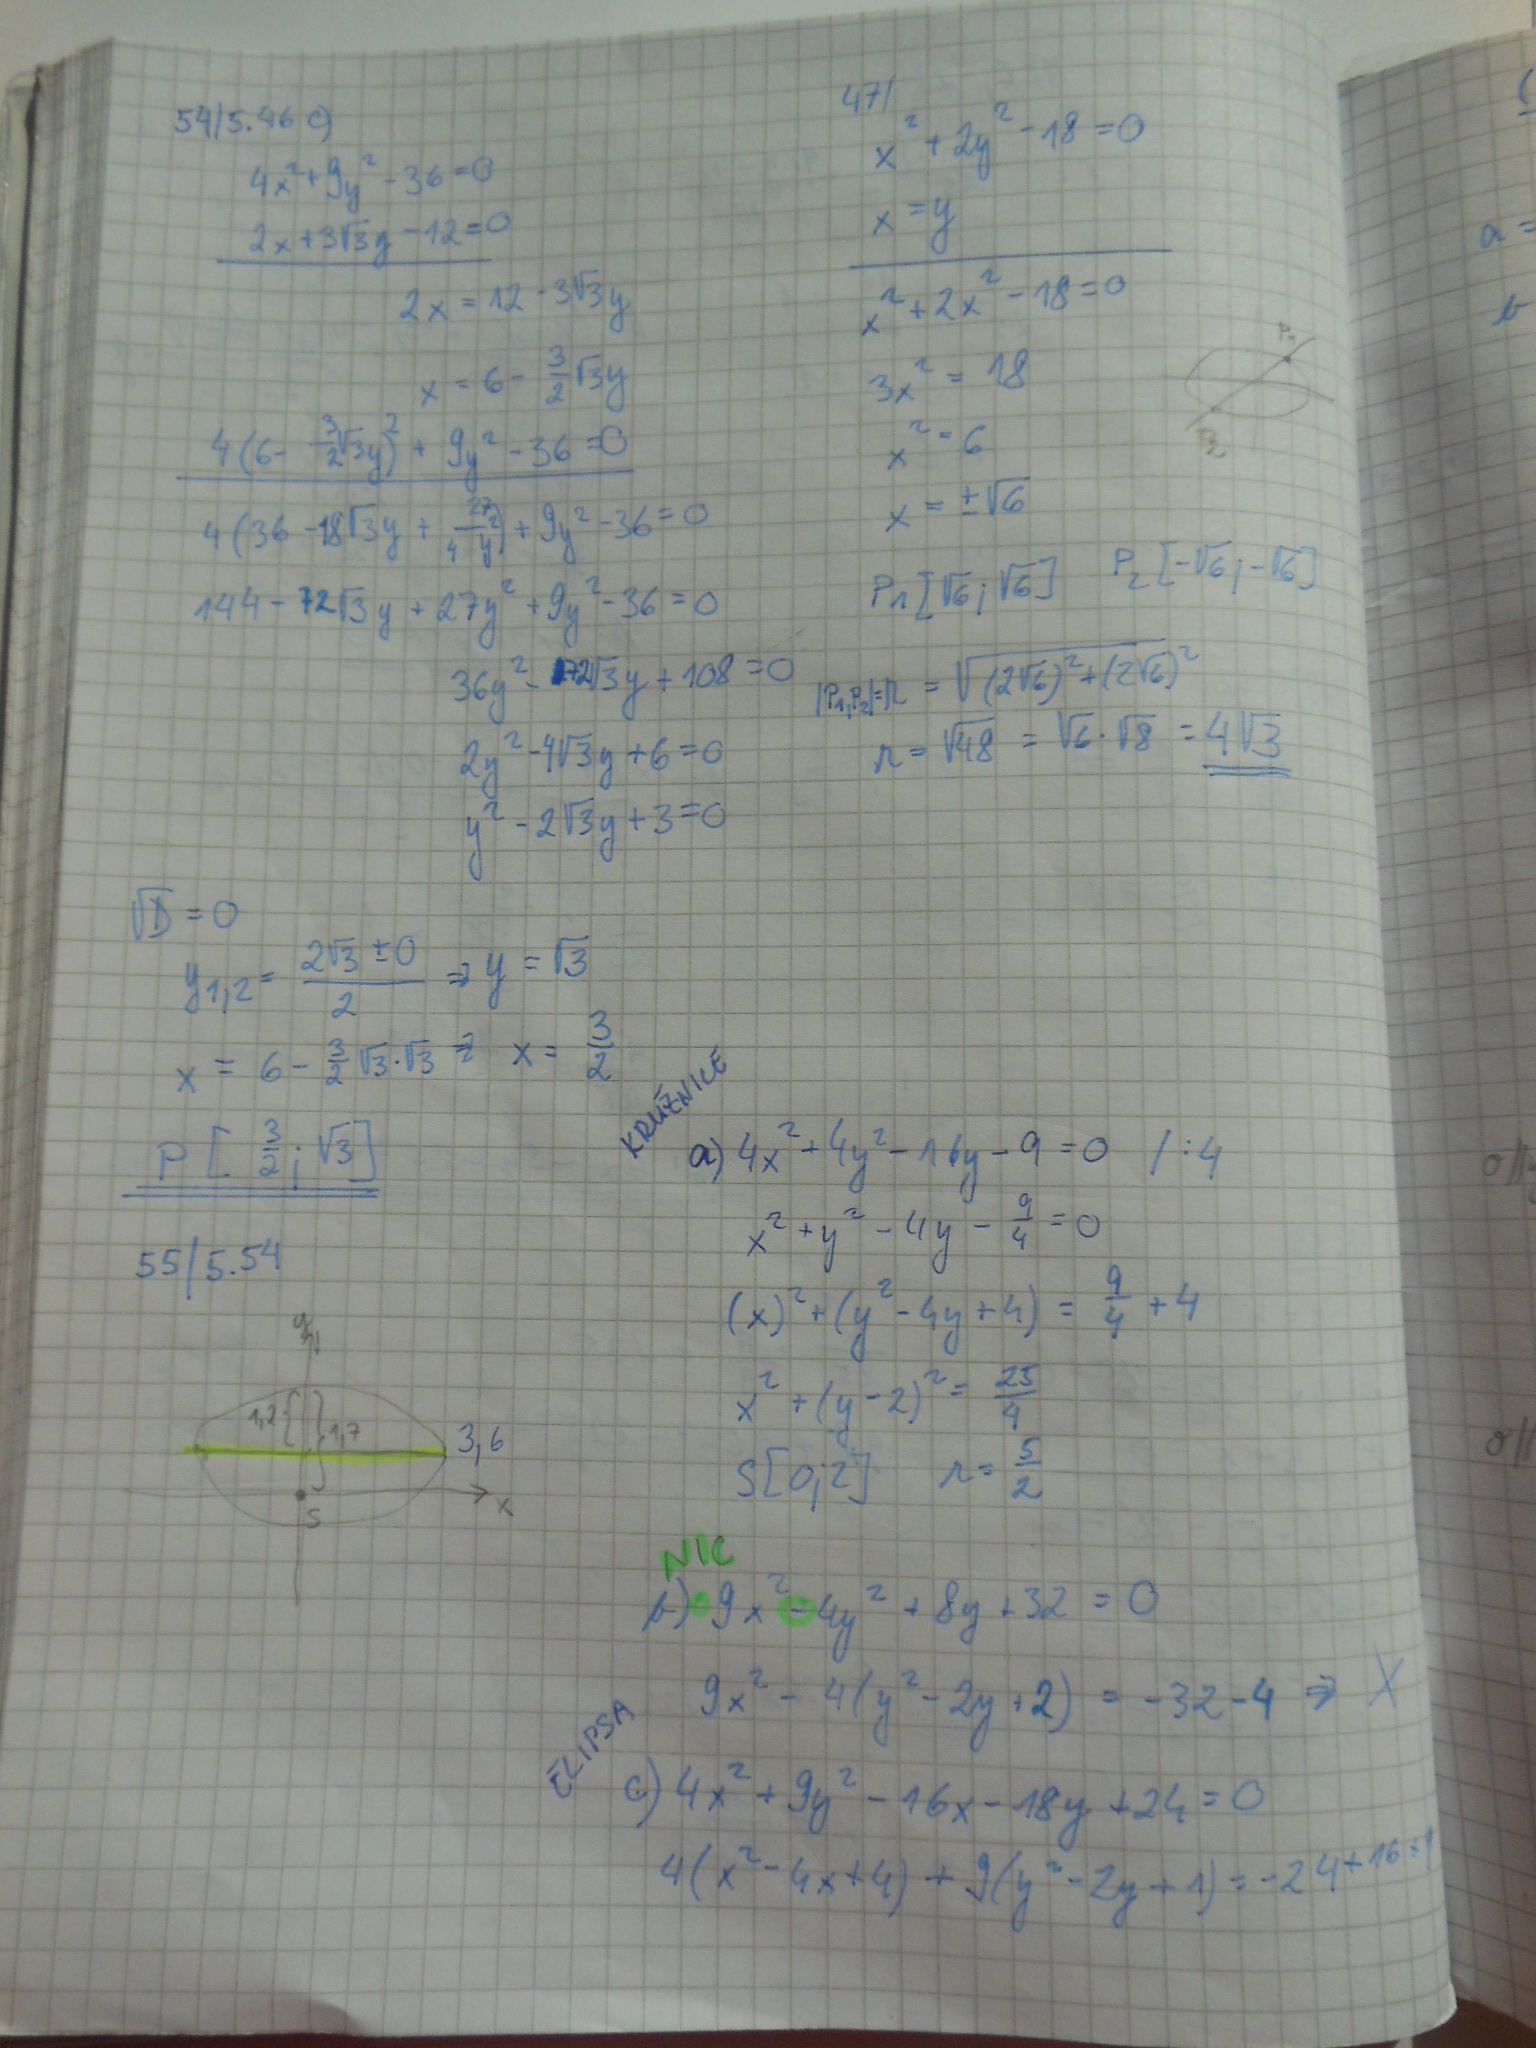 54/5.46 c)
4x² + 9y² - 36 = 0
2x + 3√3y - 12 = 0
2x = 12 - 3√3y
x = 6 - 3/2 √3y
4(6 - 3/2 √3y)² + 9y² - 36 = 0
4(36 - 18√3y + 27/4 y²) + 9y² - 36 = 0
144 - 72√3y + 27y² + 9y² - 36 = 0
36y² - 72√3y + 108 = 0
2y² - 4√3y + 6 = 0
y² - 2√3y + 3 = 0
√D = 0
y1,2 = (2√3 ± 0)/2 ⇒ y = √3
x = 6 - 3/2 √3·√3 ⇒ x = 3/2
P [3/2; √3]
55/5.54
y
1,2
1,7
3,6
S
x
47/
x² + 2y² - 18 = 0
x = y
x² + 2x² - 18 = 0
3x² = 18
x² = 6
x = ±√6
P1
P2
P1 [√6; √6] P2 [-√6; -√6]
|P1,P2| = r = √((2√6)² + (2√6)²)
r = √48 = √6·√8 = 4√3
KRUŽNICE
a) 4x² + 4y² - 16y - 9 = 0 /:4
x² + y² - 4y - 9/4 = 0
(x)² + (y² - 4y + 4) = 9/4 + 4
x² + (y - 2)² = 25/4
S[0;2] r = 5/2
NIC
b) 9x² - 4y² + 8y + 32 = 0
9x² - 4(y² - 2y + 2) = -32 - 4 ⇒ X
ELIPSA
c) 4x² + 9y² - 16x - 18y + 24 = 0
4(x² - 4x + 4) + 9(y² - 2y + 1) = -24 + 16 + 9
a =
b